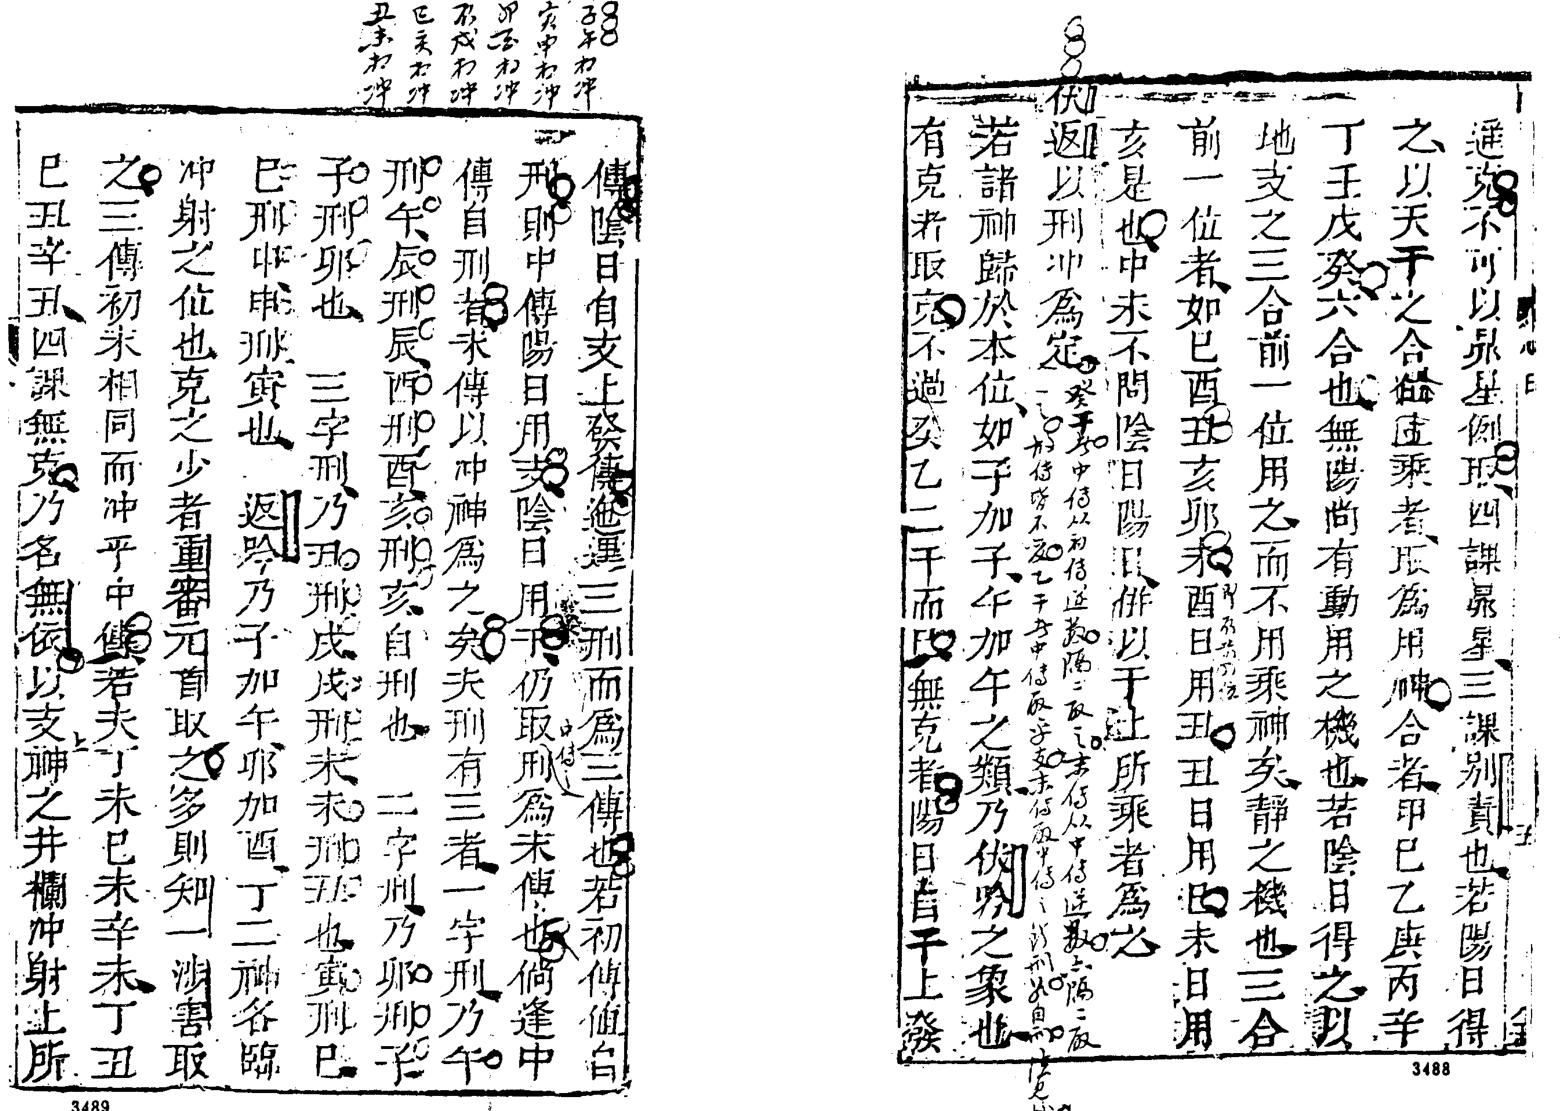 遥克不可以昴星例取四課昴星三課别責也若陽日得
之以天干之合位乘者取為用神合者甲巳乙庚丙辛
丁壬戊癸六合也無陽尚有動用之機也若陰日得之以
地支之三合前一位用之而不用乘神矣靜之機也三合
前一位者如巳酉丑亥卯未酉日用丑丑日用巳未日用
亥是也中末不問陰日陽日俳以干上所乘者為之
伏返以刑冲為定
若諸神歸於本位如子加子午加午之類乃伏吟之象也
有克者取克不過癸乙二干而已無克者陽日自干上發
3488
子午相冲
寅申相冲
卯酉相冲
辰戌相冲
巳亥相冲
丑未相冲
傳陰日自支上發傳迤邐三刑而為三傳也若初傳値自
刑則中傳陽日用支陰日用干仍取刑為末傳也倘逢中
傳自刑者末傳以冲神為之矣夫刑有三者一字刑乃午
刑午辰刑辰酉刑酉亥刑亥自刑也 二字刑乃卯刑子
子刑卯也 三字刑乃丑刑戌戌刑未未刑丑也寅刑巳
巳刑申申刑寅也 返吟乃子加午卯加酉十二神各臨
冲射之位也克之少者重審元首取之多則知一涉害取
之三傳初末相同而冲乎中傳若夫丁未巳未辛未丁丑
巳丑辛丑四課無克乃名無依以支神之井欄冲射上所
3489